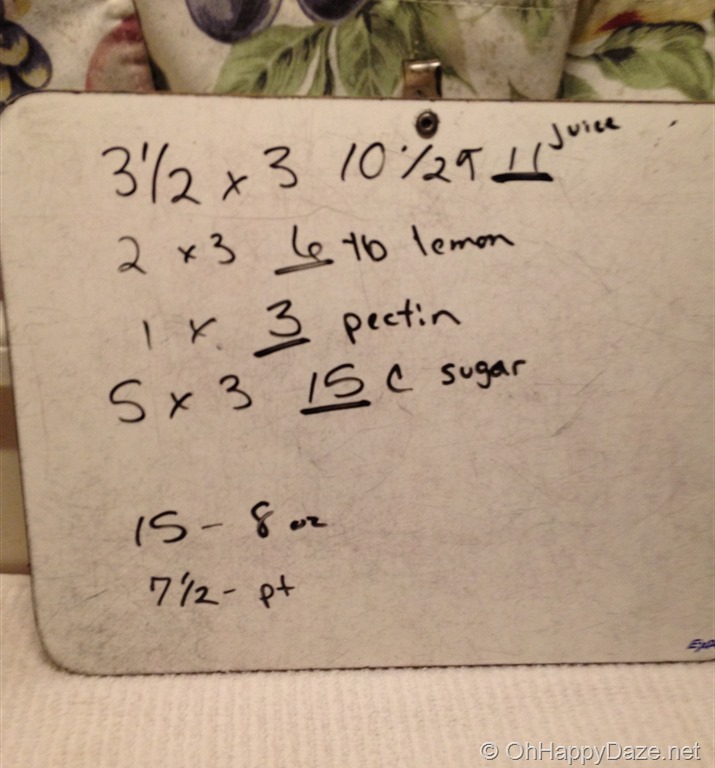 3 1/2 x 3 10 1/2 11 Juice
2 x 3 6 tb lemon
1 x 3 pectin
5 x 3 15 c sugar
15 - 8 oz
7 1/2 - pt
© OhHappyDaze.net